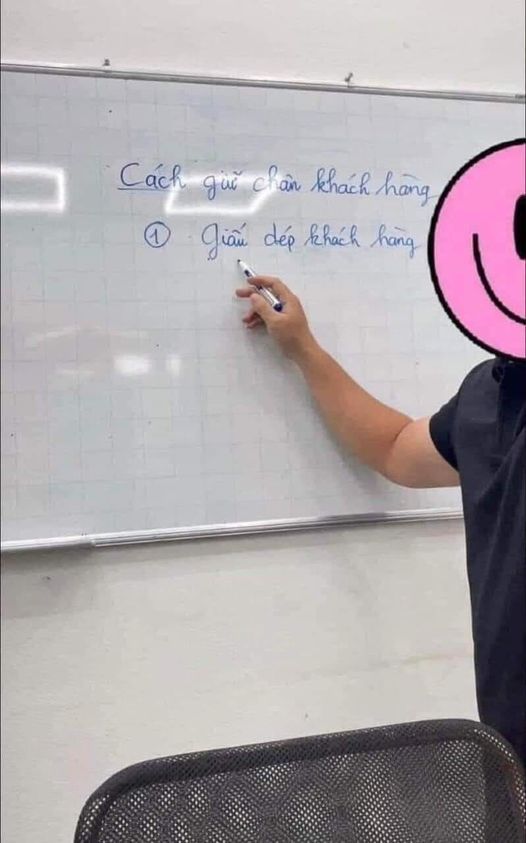 Cách giữ chân khách hàng
① Giấu dép khách hàng